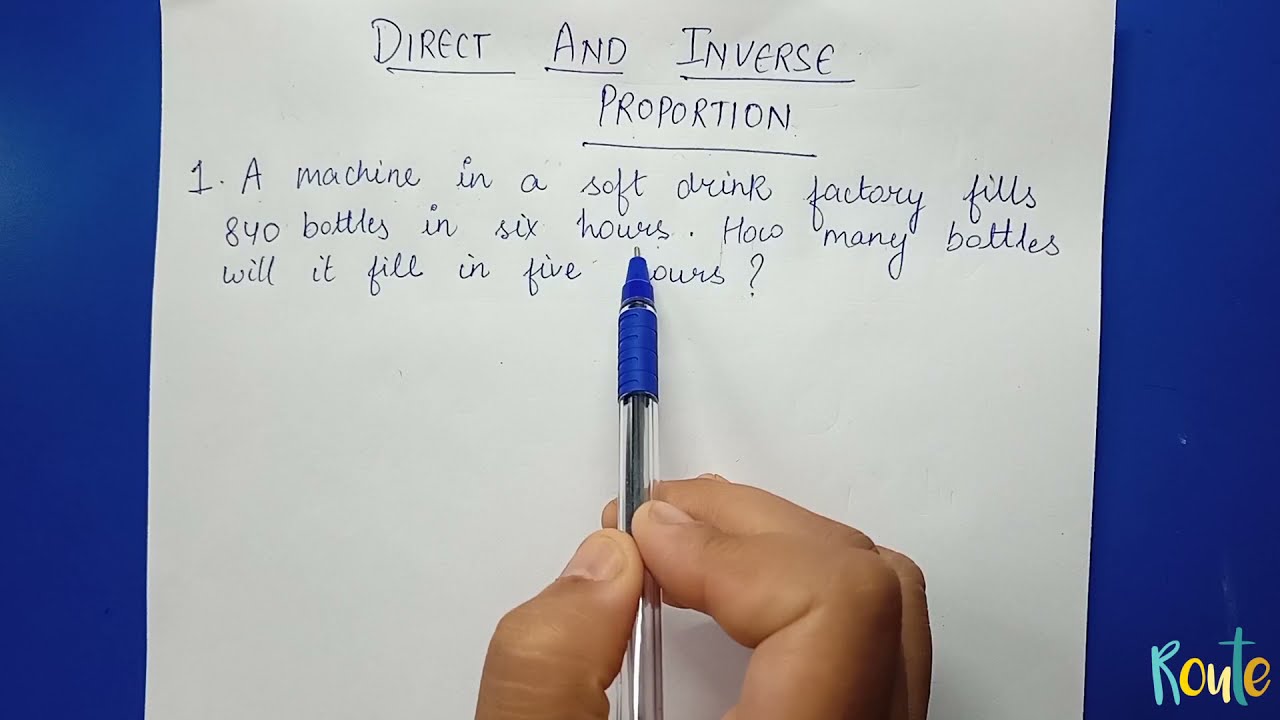 DIRECT AND INVERSE
PROPORTION
1. A machine in a soft drink factory fills
840 bottles in six hours. How many bottles
will it fill in five ours?
Route